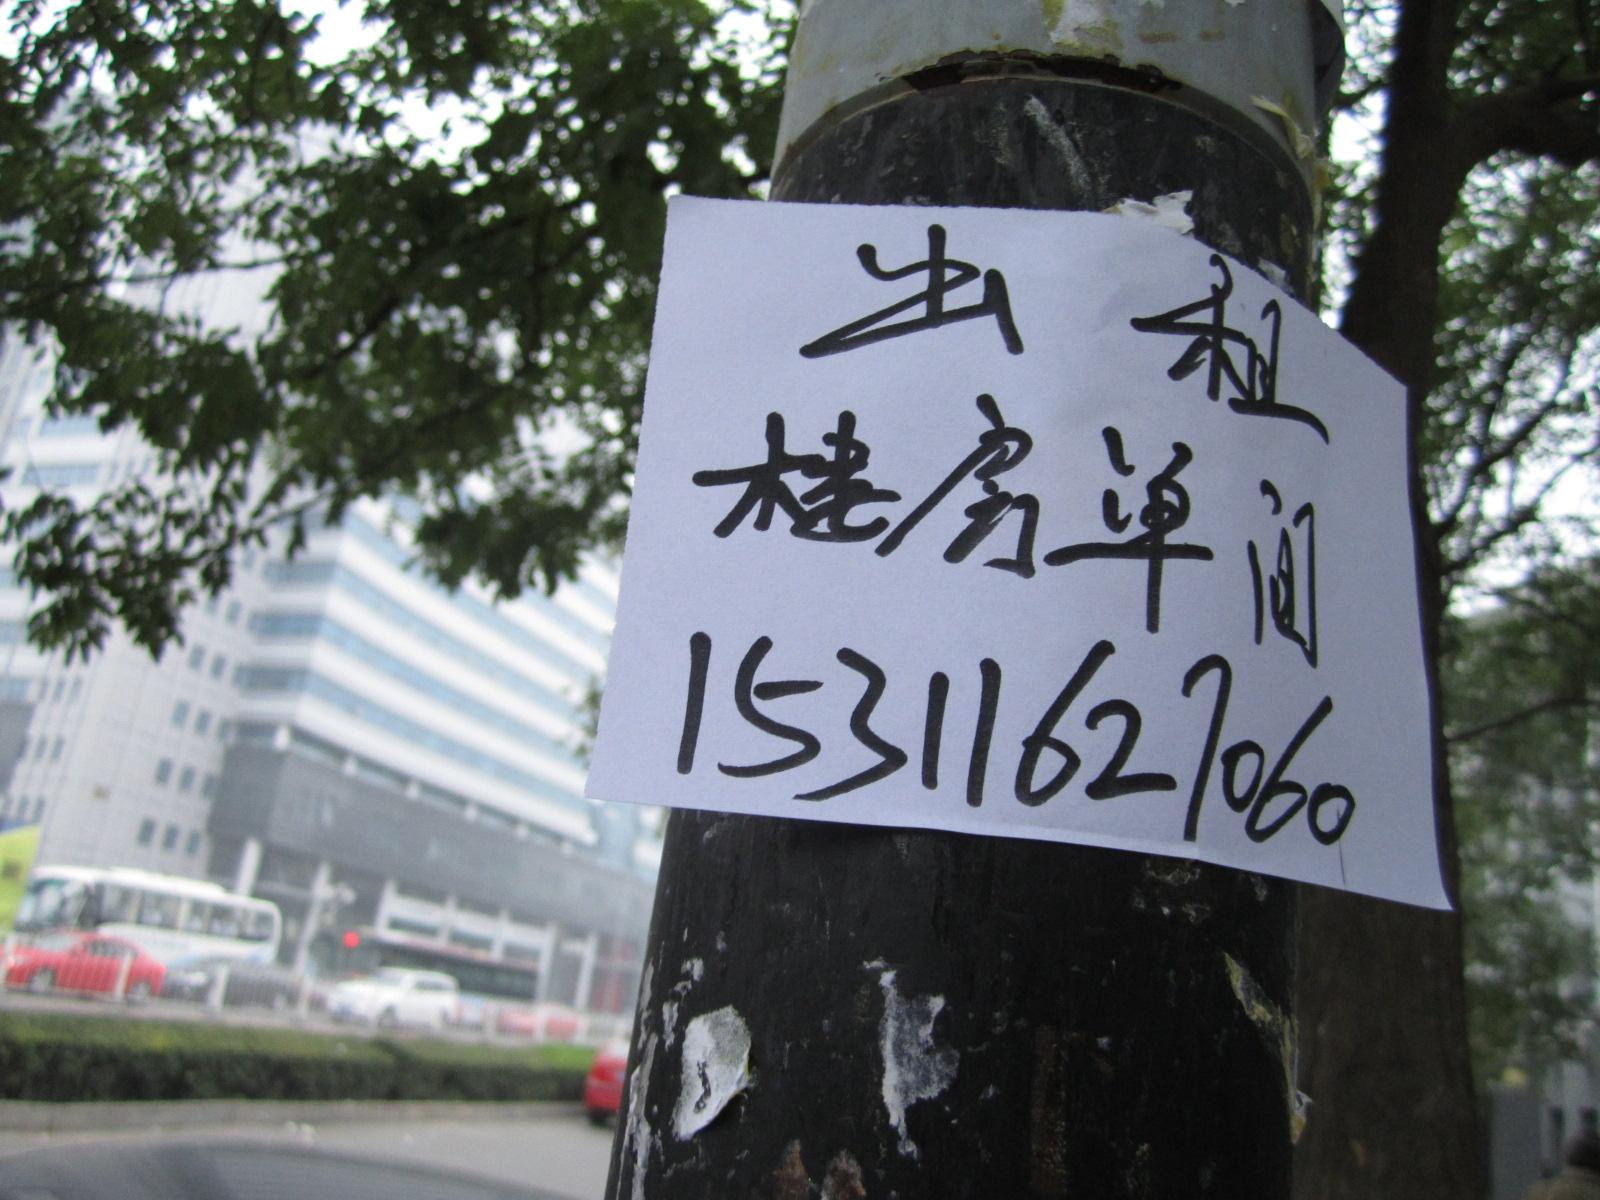 出租
楼房单间
15311627060